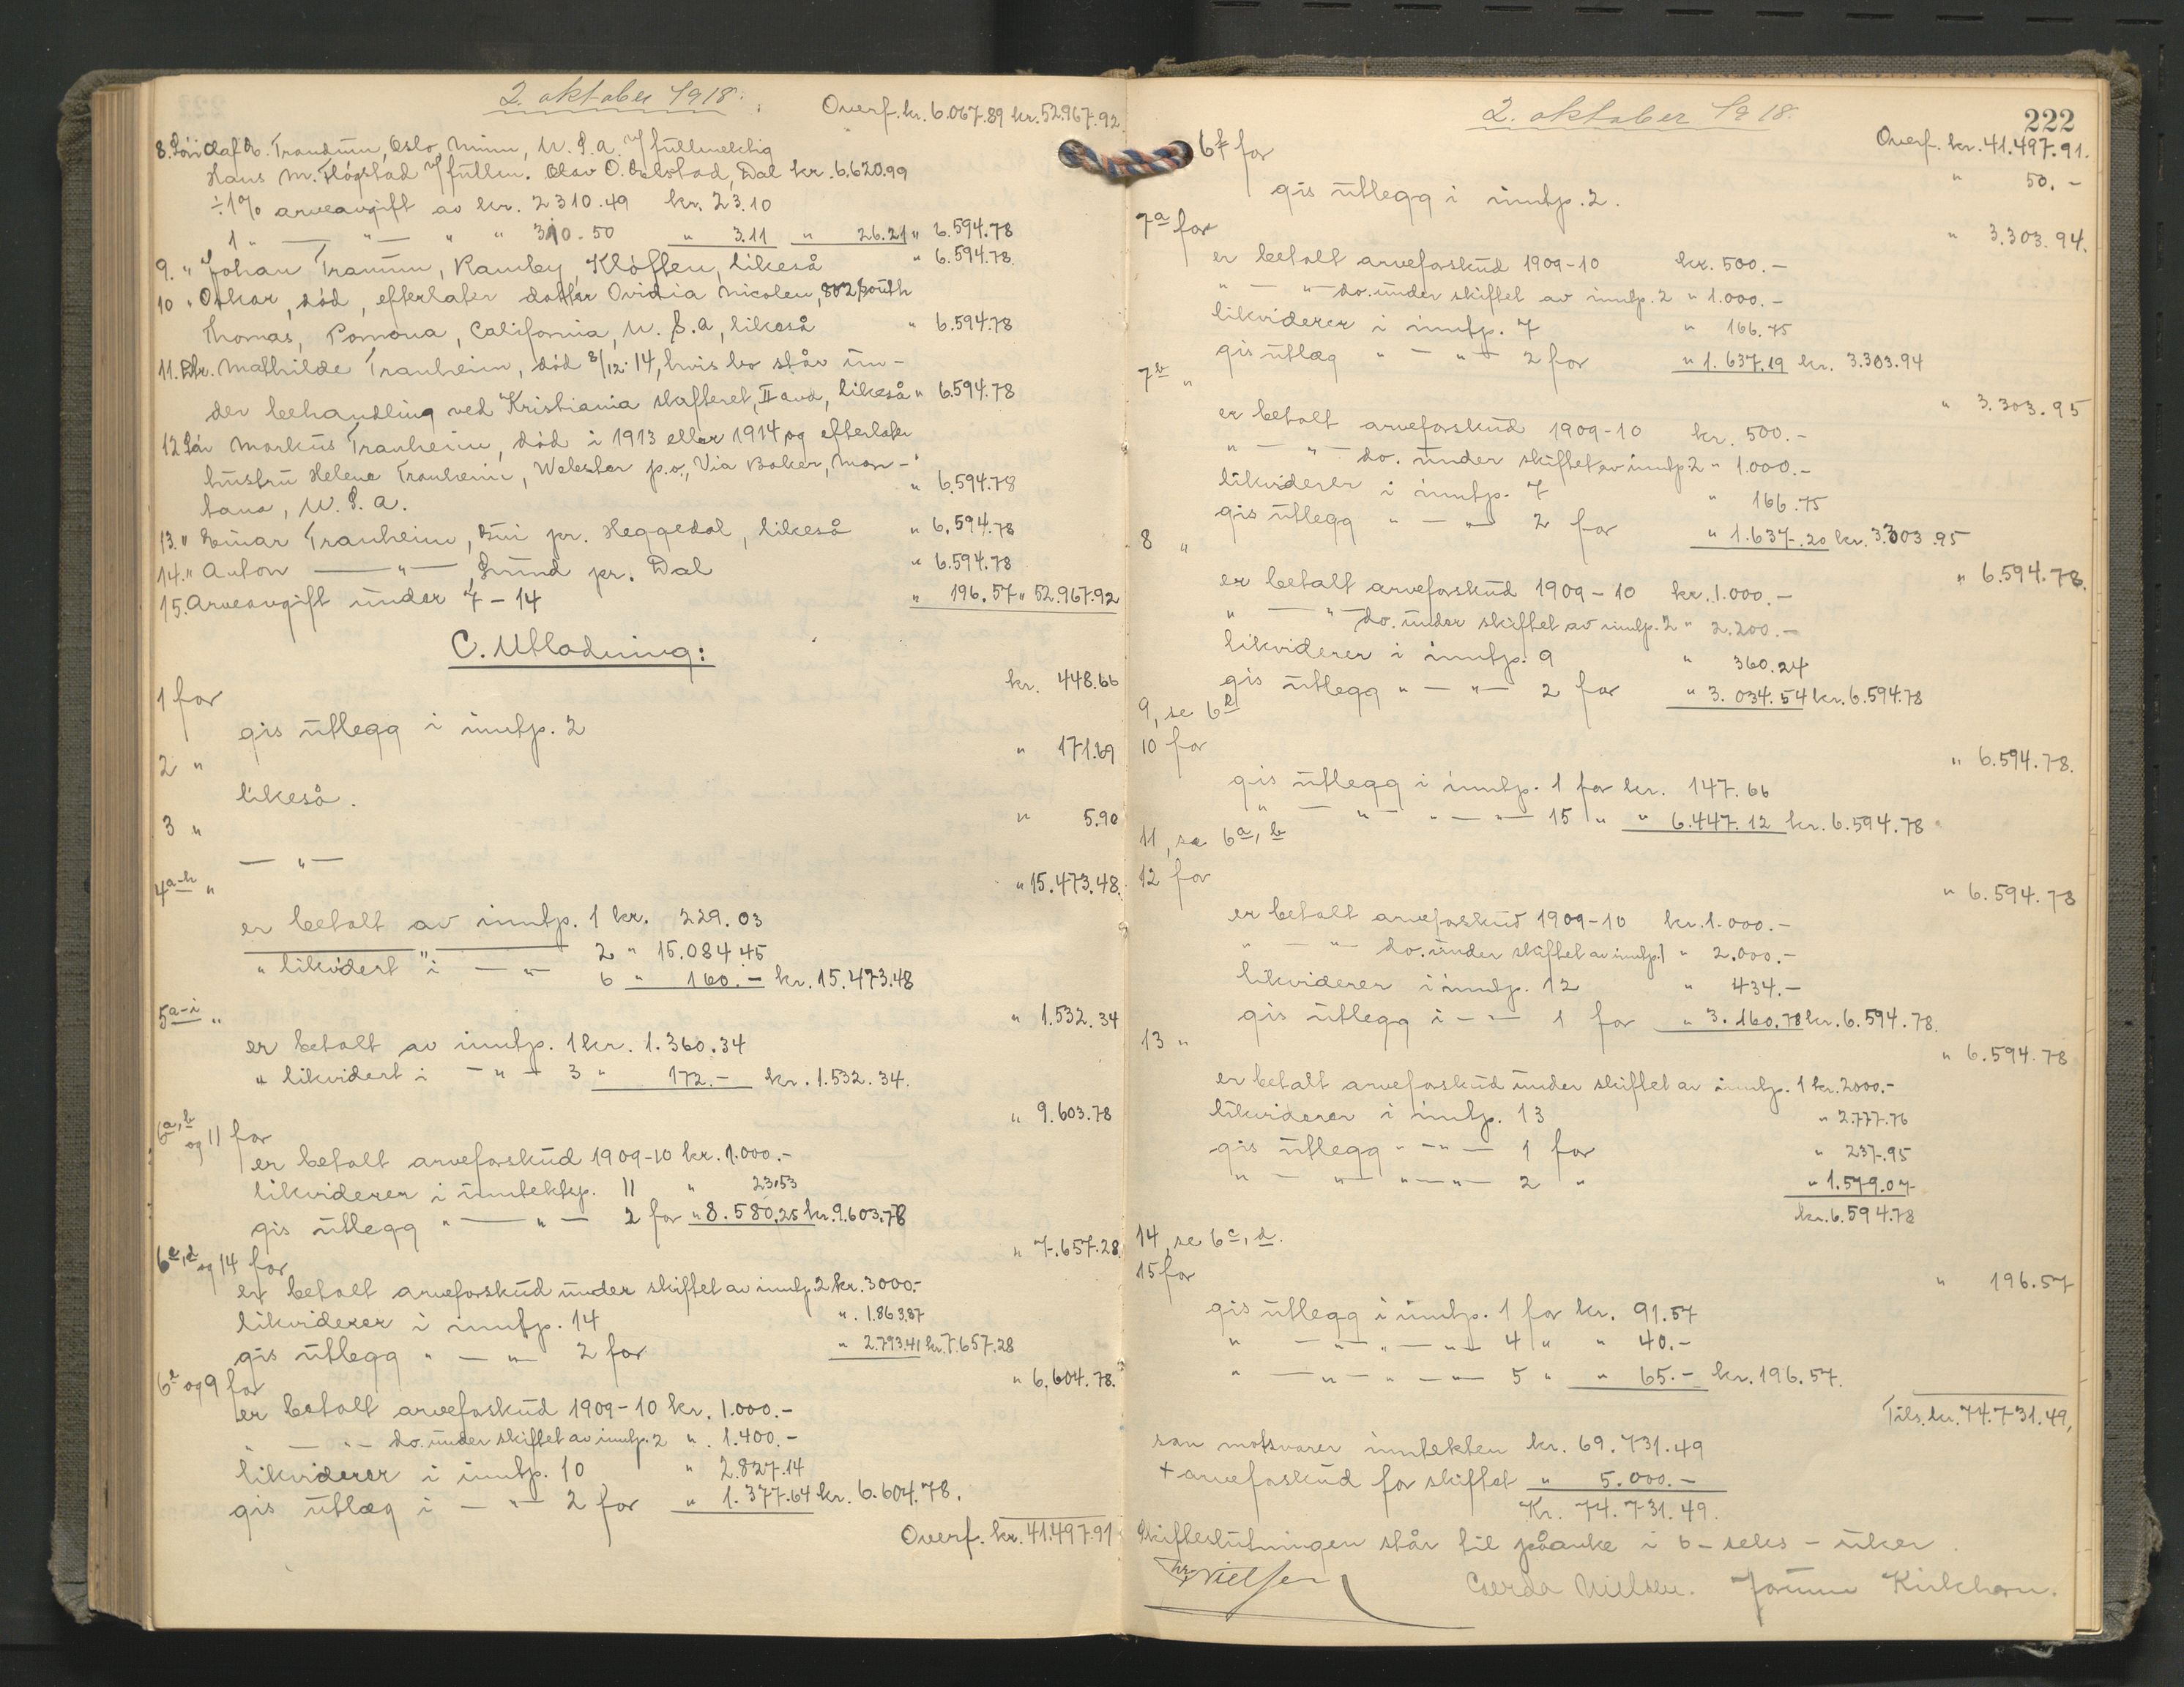 2. oktober 1918.
Overf. kr. 6.067.89 kr. 52.967.92
8. Søn Olaf A. Trandum, Oslo, Minn, U. S. A. v/ fullmektig
Hans M. Fløgstad v/ fullm. Olav O. Dalstad, Dal kr. 6.620.99
÷ 1% arveavgift av kr. 2310.49 kr. 23.10
1 " — " — " " 310.50 " 3.11 " 26.21 " 6.594.78
9. " Johan Tranum, Ramby, Kløften, likeså " 6.594.78
10 " Oskar, død, efterlater datter Ovidia Nicolen, 802 South
Thomas, Pomona, California, U. S. A, likeså " 6.594.78
11. Dtr. Mathilde Tranheim, død 8/12.14, hvis bo står un-
der behandling ved Kristiania skifteret, II avd, likeså " 6.594.78
12 Søn Markus Tranheim, død i 1913 eller 1914, og efterlater
hustru Helene Tranheim, Webster p.o., Via Baker, Mon-
tana, U. S. A. " 6.594.78
13. " Einar Tranheim, Gui pr. Heggedal, likeså " 6.594.78
14. " Anton — " — , Lund pr. Dal " 6.594.78
15. Arveavgift under 7 - 14 " 196.57 " 52.967.92
C. Utlodning:
1 for kr. 448.66
gis utlegg i inntp. 2
2 " " 171.69
likeså.
3 " " 5.90
— " —
4 a-h " " 15.473.48.
er betalt av inntp. 1 kr. 229.03
" 2 " 15.084.45
" likvidert i — " — 6 " 160.- kr. 15.473.48
5 a-i " " 1.532.34
er betalt av inntp. 1 kr. 1.360.34
" likvidert i — " — 3 " 172.- kr. 1.532.34.
6 a, b og 11 for " 9.603.78
er betalt arveforskud 1909-10 kr. 1.000.-
likviderer i inntektsp. 11 " 23.53
gis utlegg " — " — 2 for " 8.580.25 kr. 9.603.78
6 c, d og 14 for " 7.657.28
er betalt arveforskud under skiftet av inntp. 2 kr. 3000.-
likviderer i inntp. 14 " 1.863.87
gis utlegg " — " — 2 for " 2.793.41 kr. 7.657.28
6 e og 9 for " 6.604.78.
er betalt arveforskud 1909-10 kr. 1.000.-
" — " — do. under skiftet av inntp. 2 " 1.400.-
likviderer i inntp. 10 " 2.827.14
gis utlæg i — " — 2 for " 1.377.64 kr. 6.604.78.
Overf. kr. 41.497.91
2. oktober 1918.
222
Overf. kr. 41.497.91.
6 f for " 50.-
gis utlegg i inntp. 2.
7 a for " 3.303.94.
er betalt arveforskud 1909-10 kr. 500.-
" — " — do. under skiftet av inntp. 2 " 1.000.-
likviderer i inntp. 7 " 166.75
gis utlæg " — " — 2 for " 1.637.19 kr. 3.303.94
7 b " " 3.303.95
er betalt arveforskud 1909-10 kr. 500.-
" — " — do. under skiftet av inntp 2 " 1.000.-
likviderer i inntp. 7 " 166.75
gis utlegg " — " — 2 for " 1.637.20 kr. 3.303.95
8 " " 6.594.78.
er betalt arveforskud 1909-10 kr. 1.000.-
" — " — do. under skiftet av inntp. 2 " 2.200.-
likviderer i inntp. 9 " 360.24
gis utlegg " — " — 2 for " 3.034.54 kr. 6.594.78
9, se 6 e
10 for " 6.594.78.
gis utlegg i inntp. 1 for kr. 147.66
" — " — " — " — 15 " " 6.447.12 kr. 6.594.78
11, se 6 a, b
12 for " 6.594.78
er betalt arveforskud 1909-10 kr. 1.000.-
" — " — do. under skiftet av inntp. 1 " 2.000.-
likviderer i inntp. 12 " 434.-
gis utlegg i — " — 1 for " 3.160.78 kr. 6.594.78.
13 " " 6.594.78
er betalt arveforskud under skiftet av inntp. 1 kr. 2000.-
likviderer i inntp. 13 " 2.777.76
gis utlegg " — " — 1 for " 237.95
" — " — " — " — 2 " " 1.579.07
kr. 6.594.78
14, se 6 c, d.
15 for " 196.57
gis utlegg i inntp. 1 for kr. 91.57
" — " — " — " — 4 " " 40.-
" — " — " — " — 5 " " 65.- kr. 196.57.
Tils. kr. 74.731.49,
som motsvarer inntekten kr. 69.731.49
+ arveforskud før skiftet " 5.000.-
Kr. 74.731.49.
Skifteslutningen står til påanke i 6 - seks - uker.
Nielsen Gerda Nielsen. Jorunn Kirkhorn.